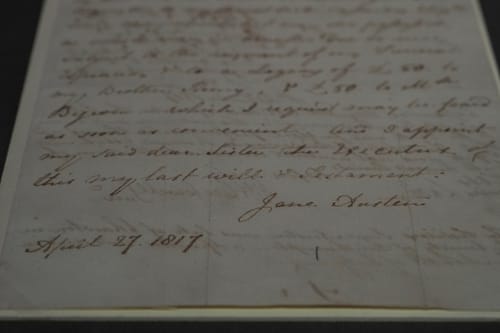 subject to the payment of my Funeral
Expences, & to a Legacy of £50. to
my Brother Henry, & £50. to Mde
Bigeon — which I request may be paid
as soon as convenient. And I appoint
my said dear Sister the Executrix of
this my last will & Testament.
Jane Austen
April 27. 1817